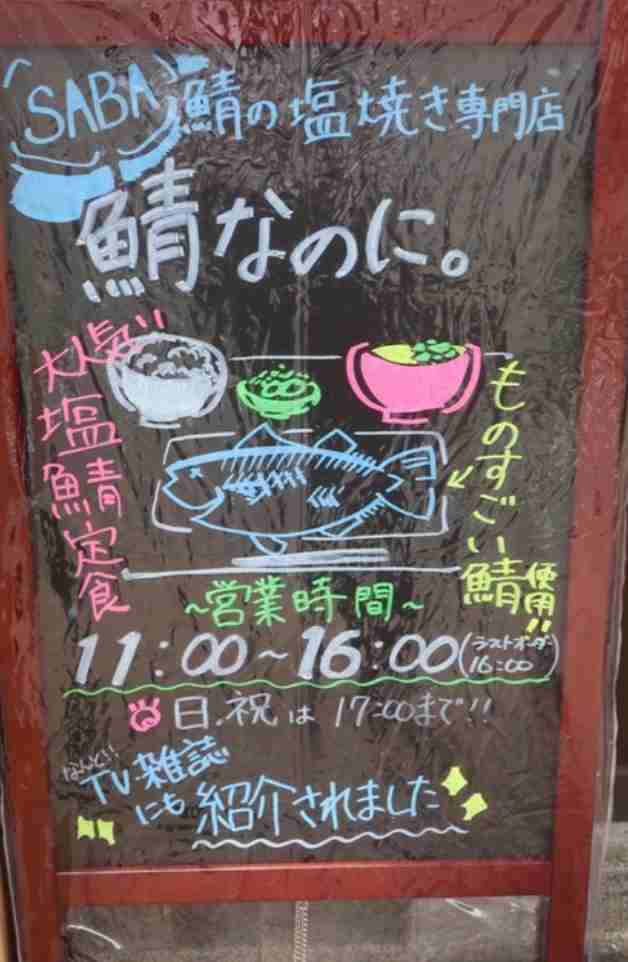 SABA 鯖の塩焼き専門店
鯖なのに。
大人気!!
塩鯖定食
ものすごい鯖使用!!
~営業時間~
11:00~16:00(ラストオーダー16:00)
日.祝は17:00まで!!
なんと!!
TV.雑誌
にも紹介されました